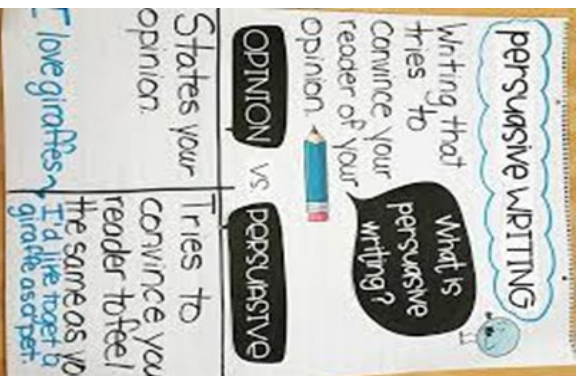 persuasive WRITTING
What is
persuasive
writing?
Writing that
tries to
Convince your
reader of your
opinion.
OPINION vs PERSUASIVE
States your
opinion.
I love giraffes
Tries to
convince you
reader to feel
the same as yo
I'd like to get a
giraffe as a pet.